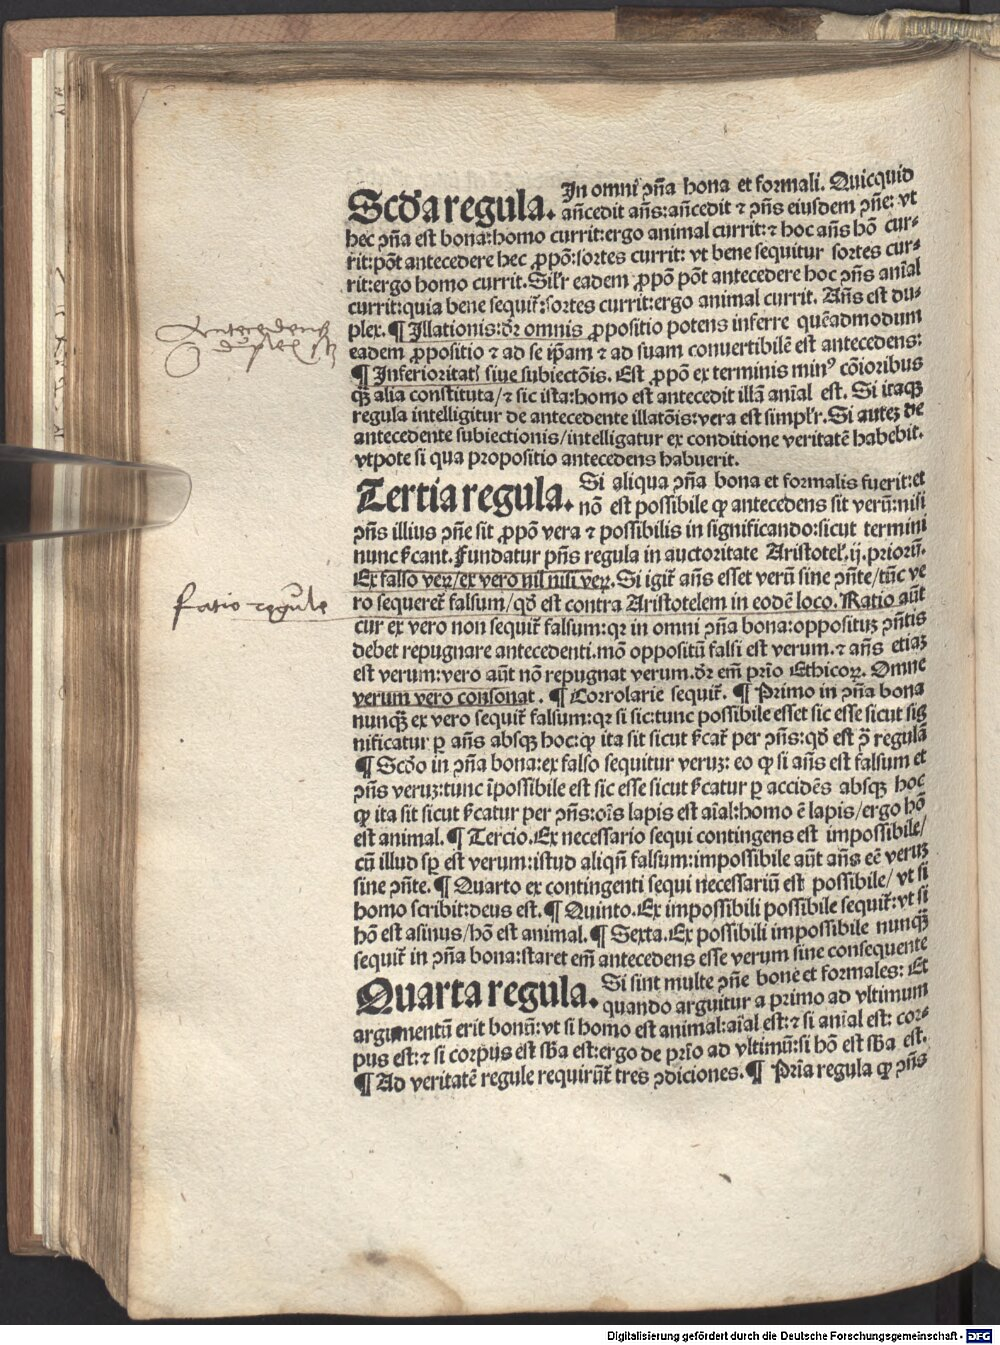 Scďa regula. In omni ↄña bona et formali. Quicquid
añcedit añs: añcedit ⁊ ↄñs eiusdem ↄñe: vt
hec ↄña est bona: homo currit: ergo animal currit: ⁊ hoc añs hō cur⸗
rit: pōt antecedere hec ꝓpō: sortes currit: vt bene sequitur sortes cur⸗
rit: ergo homo currit. Sil'r eadem ꝓpō pōt antecedere hoc ↄñs anīal
currit: quia bene sequit̄: sortes currit: ergo animal currit. Añs est du⸗
plex. ¶ Illationis: dr̄ omnis ꝓpositio potens inferre quēadmodum
eadem ꝓpositio ⁊ ad se ip̄am ⁊ ad suam conuertibilē est antecedens:
¶ Inferioritatꝭ siue subiectōis. Est ꝓpō ex terminis minꝰ cōioribus
ꝙ̄ alia constituta/ ⁊ sic ista: homo est antecedit illā anīal est. Si itaqꝫ
regula intelligitur de antecedente illatōis: vera est simpl'r. Si autez de
antecedente subiectionis/ intelligatur ex conditione veritatē habebit.
vtpote si qua propositio antecedens habuerit.
Tertia regula. Si aliqua ↄña bona et formalis fuerit: et
nō est possibile ꝙ antecedens sit verū: nisi
ↄñs illius ↄñe sit ꝓpō vera ⁊ possibilis in significando: sicut termini
nunc s̄cant. Fundatur pñs regula in auctoritate Aristotel'. ij. priorū.
Ex falso veꝝ/ ex vero nil nisi veꝝ. Si igit̄ añs esset verū sine ↄñte/ tūc ve
ro sequeret̄ falsum/ qđ est contra Aristotelem in eodē loco. Ratio aūt
cur ex vero non sequit̄ falsum: qꝛ in omni ↄña bona: oppositus ↄñtis
debet repugnare antecedenti. mō oppositū falsi est verum. ⁊ añs etiaz
est verum: vero aūt nō repugnat verum. dr̄ em̄ prīo Ethicoꝝ. Omne
verum vero consonat. ¶ Corrolarie sequit̄. ¶ Primo in ↄña bona
nunqꝫ̄ ex vero sequit̄ falsum: qꝛ si sic: tunc possibile esset sic esse sicut sig
nificatur ꝑ añs absqꝫ hoc: ꝙ ita sit sicut s̄cat̄ per ↄñs: qđ est ↄ̄ regulā
¶ Scďo in ↄña bona: ex falso sequitur veruz: eo ꝙ si añs est falsum et
ↄñs veruz: tunc īpossibile est sic esse sicut s̄catur ꝑ accidēs absqꝫ hoc
ꝙ ita sit sicut s̄catur per ↄñs: oīs lapis est aīal: homo ē lapis/ ergo hō
est animal. ¶ Tercio. Ex necessario sequi contingens est impossibile/
cū illud sꝑ est verum: istud aliqñ falsum: impossibile aūt añs eē veruz
sine ↄñte. ¶ Quarto ex contingenti sequi necessariū est possibile/ vt si
homo scribit: deus est. ¶ Quinto. Ex impossibili possibile sequit̄: vt si
hō est asinus/ hō est animal. ¶ Sexta. Ex possibili impossibile nunqꝫ̄
sequit̄ in ↄña bona: staret em̄ antecedens esse verum sine consequente
Quarta regula. Si sint multe ↄñe bone et formales: Et
quando arguitur a primo ad vltimum
argumentū erit bonū: vt si homo est animal: aīal est: ⁊ si anīal est: cor⸗
pus est: ⁊ si corpus est sb̄a est: ergo de prīo ad vltimū: si hō est sb̄a est.
¶ Ad veritatē regule requirūt̄ tres ↄdiciones. ¶ Prīa regula ꝙ ↄñs
Antecedens
duplex
ratio regule
Digitalisierung gefördert durch die Deutsche Forschungsgemeinschaft - DFG